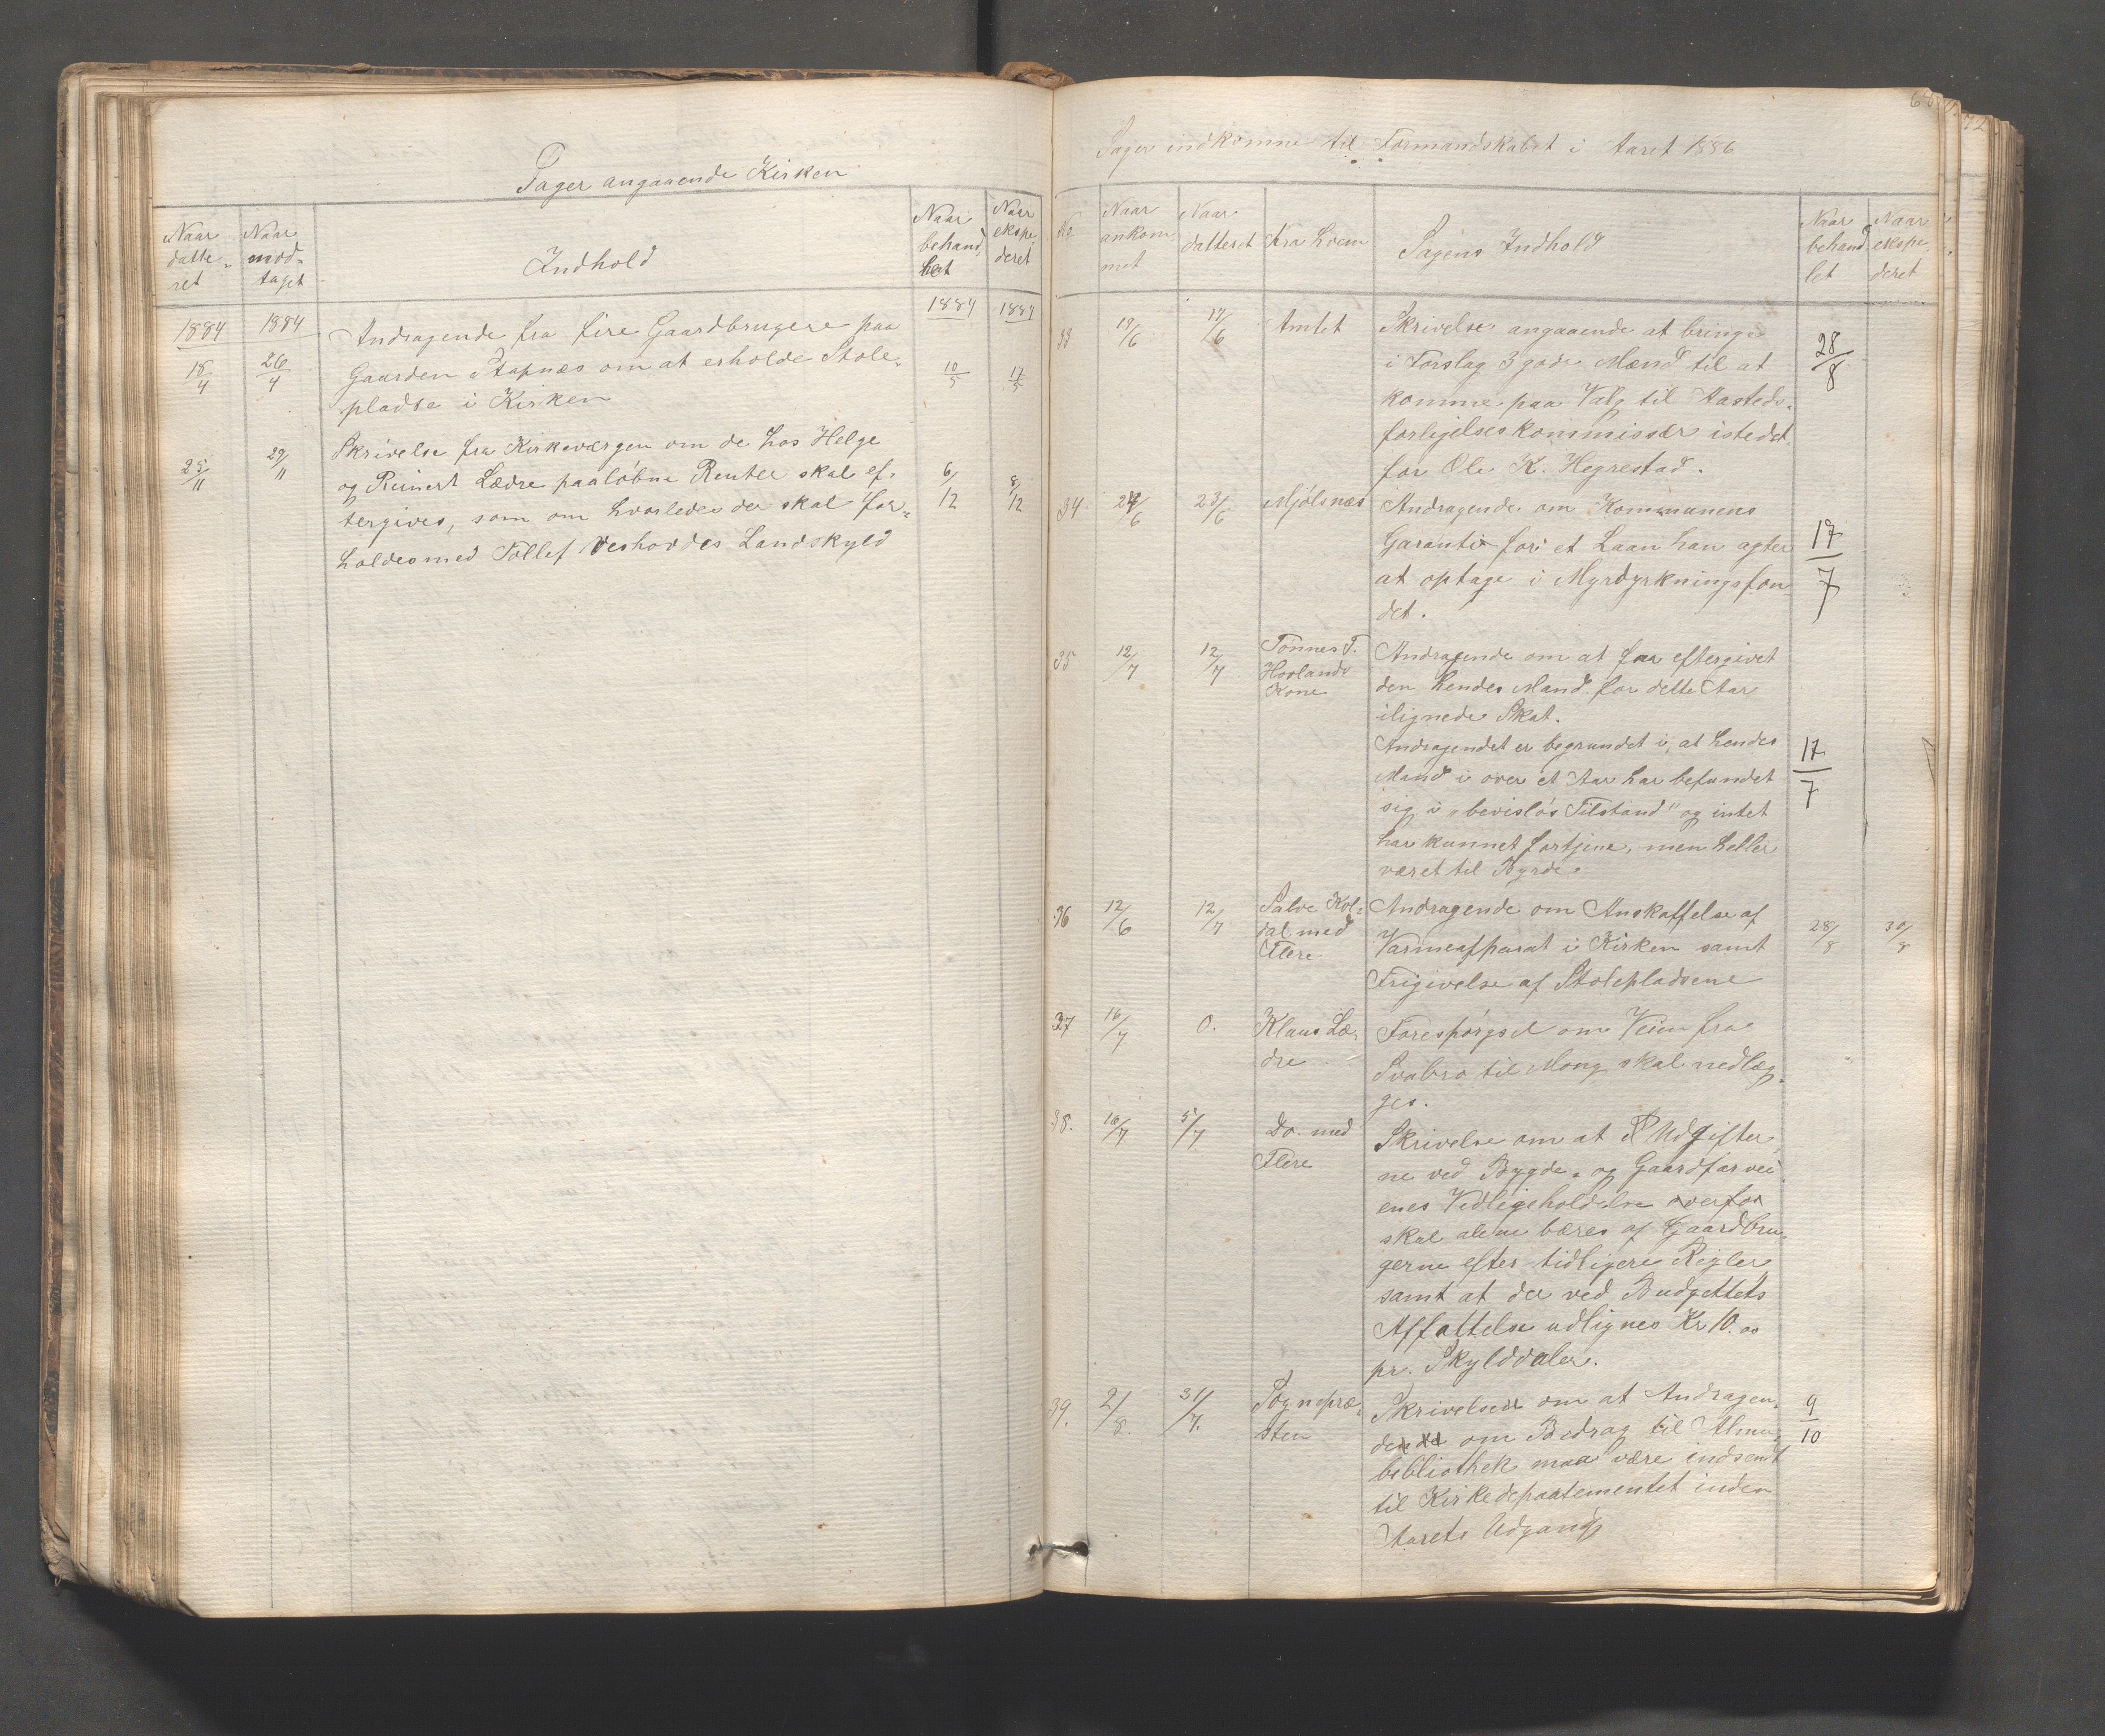 Sager angaaende Kirken
Naar datte- ret
Naar mod- taget
Indhold
Naar behand let
Naar ekspe- deret
1884 1884 1884 1884
18/4 26/4 Andragende fra fire Gaardbrugere paa
Gaarden Stapnæs om at erholde Stole- 10/5 17/5
pladse i Kirken
25/11 29/11 Skrivelse fra Kirkeværgen om de hos Helge
og Reinert Lædre paaløbne Renter skal ef- 6/12 8/12
tergives, som om hvorledes der skal for-
holdes med Tollef Veshovdes Landskyld
Sager indkomne til Formandskabet i Aaret 1886
No
Naar ankom met
Naar datteret
Fra hvem
Sagens Indhold
Naar behand let
Naar ekspe- deret
33 19/6 17/6 Amtet Skrivelse angaaende at bringe 28/8
i Forslag 3 gode Mænd til at
komme paa Valg til Aasteds-
forligelseskommissær istedet
for Ole K. Hegrestad.
34 24/6 23/6 Mjølsnæs Andragende om Kommunens
Garanti for et Laan han agter 17/7
at optage i Myrdyrkningsfon
det.
35 12/7 12/7 Tønnes T. Andragende om at faa eftergivet
Hovlands den hendes Mand for dette Aar
Kone ilignede Skat.
Andragendet er begrundet i, at hendes 17/7
Mand i over et Aar har befundet
sig i "bevisløs Tilstand" og intet
har kunnet fortjene, men heller
været til Byrde.
36 12/6 12/7 Salve Kol- Andragende om Anskaffelse af 28/8 30/8
dal med Varmeapparat i Kirken samt
Flere Frigivelse af Stolepladsene
37 16/7 0. Klaus Læ- Forespørgsel om Veien fra
dre Svabro til Mong skal nedlæg-
ges.
38. 16/7 5/7 Do. med Skrivelse om at Udgifter
Flere ne ved Bygde- og Gaardfarvei
enes Vedligeholdelse overfor
skal alene bæres af Gaardbru
gerne efter tidligere Regler
samt at der ved Budgettets
Affattelse udlignes Kr 10.00
pr. Skylddaler.
39. 2/8. 31/7. Sognepræ- Skrivelse om at Andragen- 9/10
sten de om Bidrag til Almu-
bibliothek maa være indsendt
til Kirkedepartementet inden
Aarets Udgang